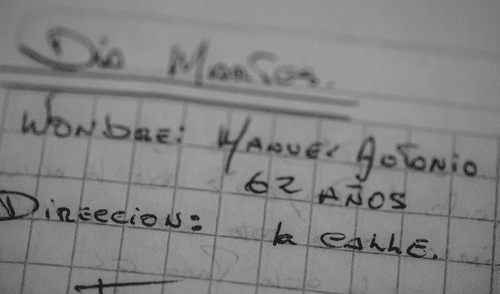 Dia Martes.
Wondre: Manuel Antonio
62 AÑOS
Direecion: la calle.